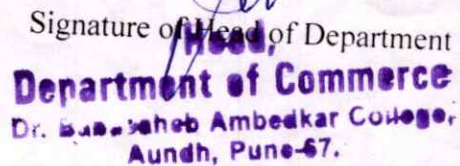 Signature of Head of Department
Head,
Department of Commerce
Dr. Babasaheb Ambedkar College,
Aundh, Pune-67.